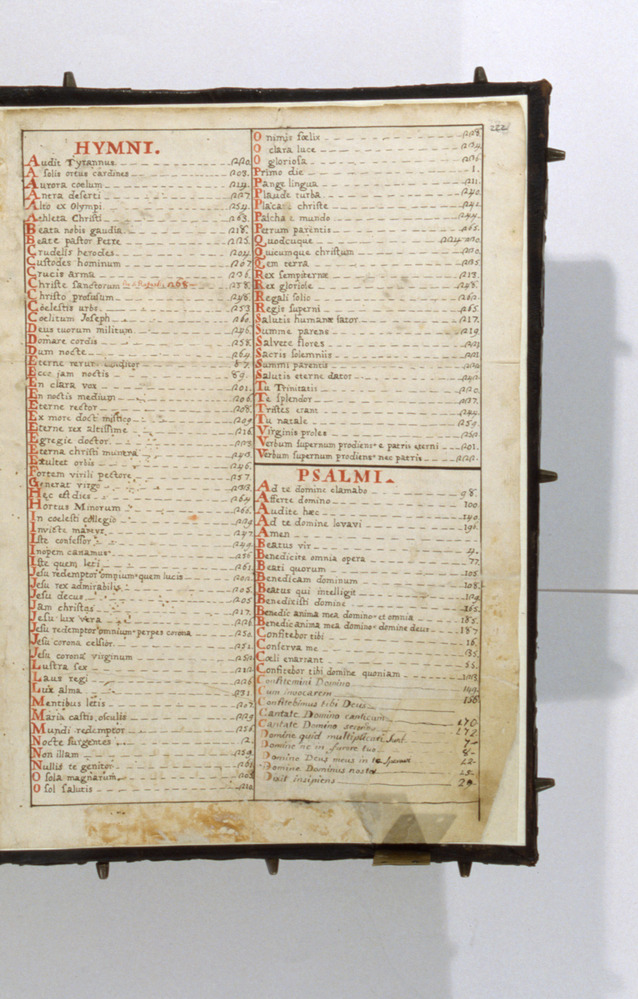 HYMNI.
Audit Tyrannus
A solis ortus cardines 203.
Aurora coelum
Antra deserti
Alto ex Olympi
Athleta Christi 263.
Beata nobis gaudia 218.
Beate pastor Petre
Crudelis herodes 204.
Custodes hominum
Crucis arma
Christe sanctorum 258.
Christo profusum 248.
Coelestis urbs 253
Coelitum Joseph 260.
Deus tuorum militum 246.
Domare cordis 258.
Dum nocte 264.
Eterne rerum conditor 87.
Ecce jam noctis 89.
En clara vox 201.
En noctis medium 206.
Eterne rector 208.
Ex more doct mistico 209
Eterne rex altissime 216.
Egregie doctor
Eterna christi munera 243.
Exultet orbis 246.
Fortem virili pectore 257.
Generat virgo
Hec est dies 264.
Hortus Minorum 266.
In coelesti collegio
Inviste martyr 247.
Iste confessor 249.
Inopem canamus
Iste quem leti 261
Jesu redemptor omnium quem lucis 202.
Jesu rex admirabilis 205.
Jesu decus 205
Jam christus 217.
Jesu lux vera
Jesu redemptor omnium perpes corona 250.
Jesu corona celsior 251.
Jesu corona virginum 252
Lustra sex
Laux regi
Lux alma 231.
Mentibus letis 207.
Maria castis osculis 229
Mundi redemptor 256.
Nocte surgentes 2.
Non illam 259.
Nullis te genitor 261
O sola magnarum 203
O sol salutis 210
222
O nimis foelix 228.
O clara luce
O gloriosa 236
Primo die 1.
Pange lingua 211.
Plaude turba 240.
Placa christe 242.
Palcha mundo 244.
Petrum parentis 265.
Quodcuque
Quicumque christum
Tem terra
Rex sempiterne 213.
Rex gloriose 248.
Regali solio 262.
Regis superni 265
Salutis humanae sator 217.
Summe parens 219
Salvete flores
Sacris solemniis
Summi parentis
Salutis eterne dator 242.
Tu Trinitatis
Te splendor 237.
Tristes erant 244.
Tu natale 259.
Virginis proles 252
Verbum supernum prodiens e patris eterni 201.
Verbum supernum prodiens nec patris
PSALMI.
Ad te domine clamabo 98.
Afferte domino 100.
Audite haec 140.
Ad te domine levavi 196.
Amen
Beatus vir 4.
Benedicite omnia opera 77
Beati quorum 105.
Benedicam dominum 108.
Beatus qui intelligit 129
Benedixisti domine 165.
Benedic anima mea domino et omnia 185.
Benedic anima mea domino domine deus 187
Confitebor tibi 16.
Conserva me 35.
Coeli enarrant 55.
Confitebor tibi domine quoniam 103
Confitemini Domino
Cum invocarem 149.
Confitebimus tibi Deus 158.
Cantate Domino canticum
Cantate Domino secundo 170.
Domine quid multiplicati sunt 172.
Domine ne in furore tuo 7
Domine Deus meus in te speravi 8
Domine Dominus noster 12
Dixit insipiens 15
29